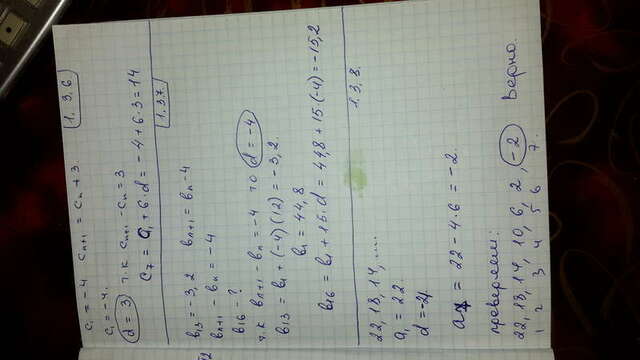 1.3.6
c₁ = -4 cₙ₊₁ = cₙ + 3
c₁ = -4.
d = 3 т.к cₙ₊₁ - cₙ = 3
c₇ = a₁ + 6·d = -4 + 6·3 = 14
1.3.7
b₁₃ = -3,2 bₙ₊₁ = bₙ - 4
bₙ₊₁ - bₙ = -4
b₁₆ - ?
т.к bₙ₊₁ - bₙ = -4 то d = -4
b₁₃ = b₁ + (-4)(12) = -3,2.
b₁ = 44,8
b₁₆ = b₁ + 15·d = 44,8 + 15·(-4) = -15,2
1.3.8.
22, 18, 14, ....
a₁ = 22.
d = -4
a₇ = 22 - 4·6 = -2.
проверяем:
22, 18, 14, 10, 6, 2, -2 Верно.
1 2 3 4 5 6 7.